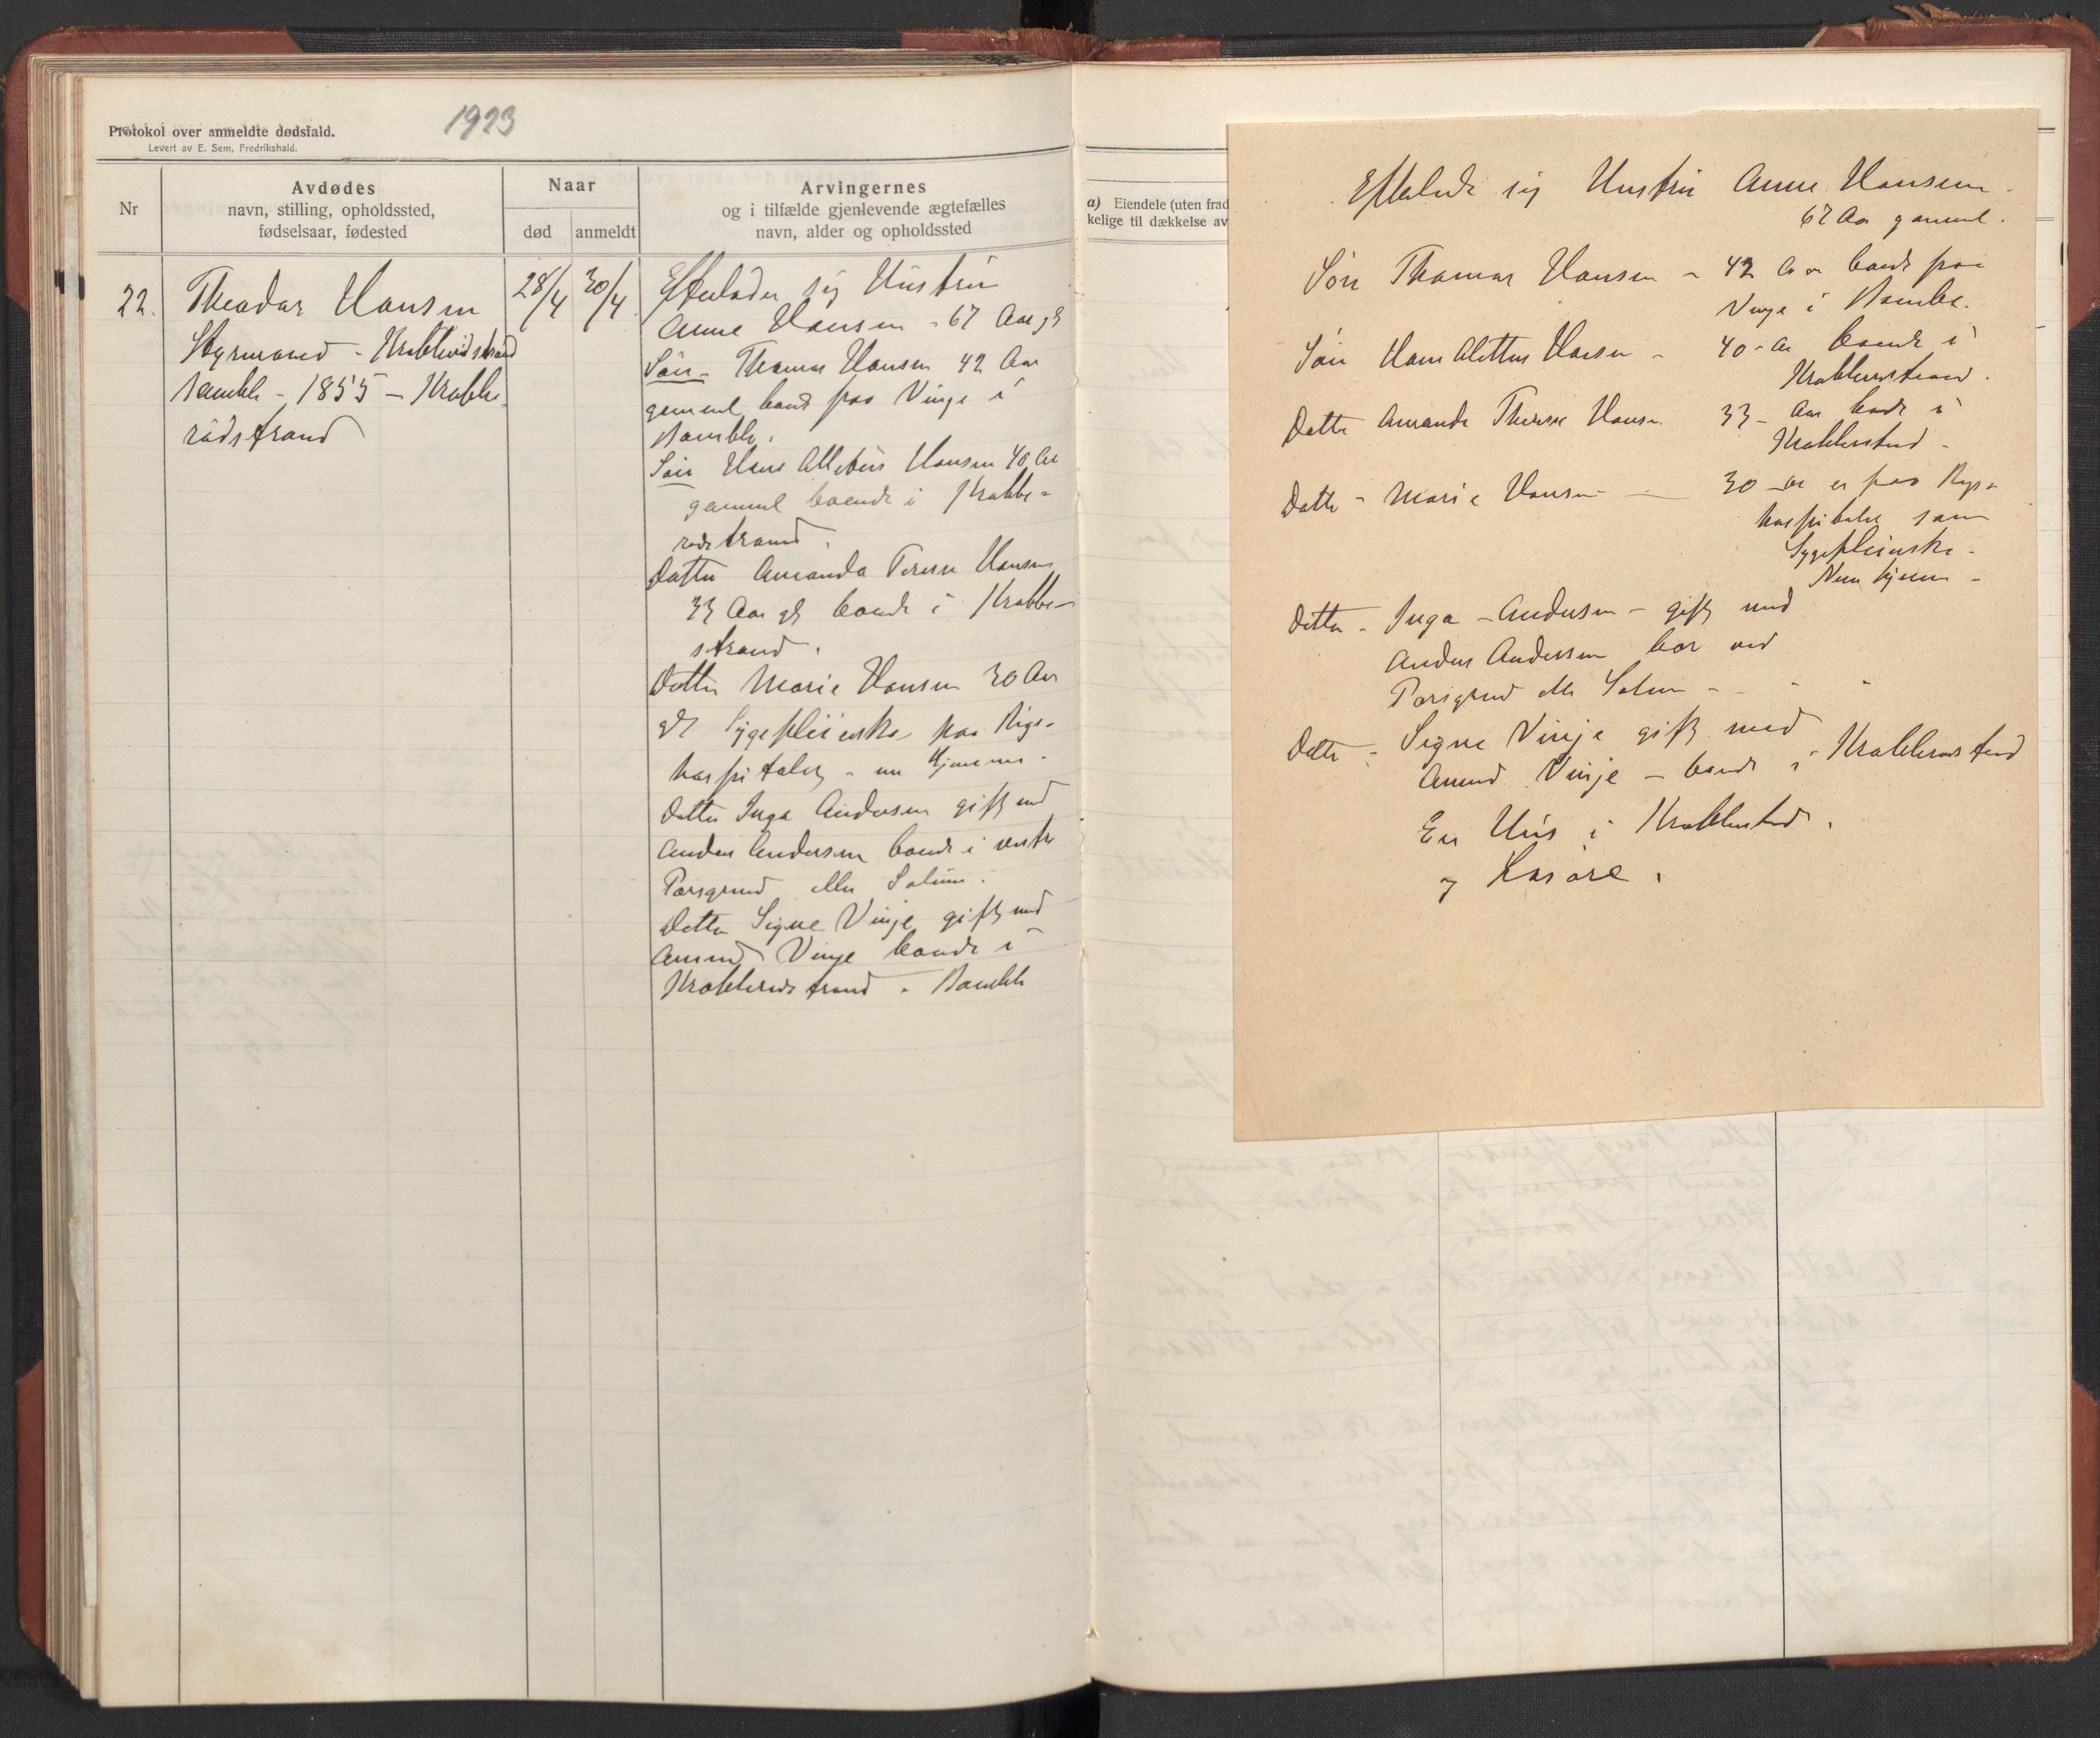 Protokol over anmeldte dødsfald.
Levert av E. Sem, Fredrikshald.
1923
Nr
Avdødes
navn, stilling, opholdssted,
fødselsaar, fødested
Naar
død
anmeldt
Arvingernes
og i tilfælde gjenlevende ægtefælles
navn, alder og opholdssted
22.
Theodor Hansen
Styrmand - Krabberødstrand
Bamble - 1855 - Krabbe
rødstrand
28/4
30/4
Efterlader sig Hustru
Anne Hansen - 67 Aar gl
Søn - Thomas Hansen 42 Aar
gammel boende paa Vinje i
Bamble.
Søn Hans Alletius Hansen 40 Aar
gammel boende i Krabbe-
rødstrand.
Datter Amanda Terese Hansen
33 Aar gl boende i Krabbe-
strand.
Datter Marie Hansen 30 Aar
gl Sygepleierske paa Rigs-
hospitalet - nu hjemme.
Datter Inga Andersen gift med
Anders Andersen boende i vestre
Porsgrund eller Solum.
Datter Signe Vinje gift med
Amund Vinje boende i
Krabberødstrand - Bamble
a) Eiendele (uten frad
kelige til dækkelse av
Efterlade sig Hustru Anne Hansen.
67 Aar gammel.
Søn Thomas Hansen - 42 Aar boende paa
Vinje i Bamble.
Søn Hans Alettius Hansen - 40 - Aar boende i
Krabberødstrand.
Datter Amanda Therese Hansen 33 - Aar boende i
Krabberstrand -
Datter - Marie Hansen - 30 - Aar er paa Rigs-
hospitalet som
Sygepleierske -
Nu hjemme -
Datter - Inga - Andersen - gift med
Anders Andersen bor ved
Porsgrund eller Solum - - " "
Datter - Signe Vinje gift med
Amund Vinje - boende i Krabberødstrand
En Hus i Krabberstrand.
og Løsøre.